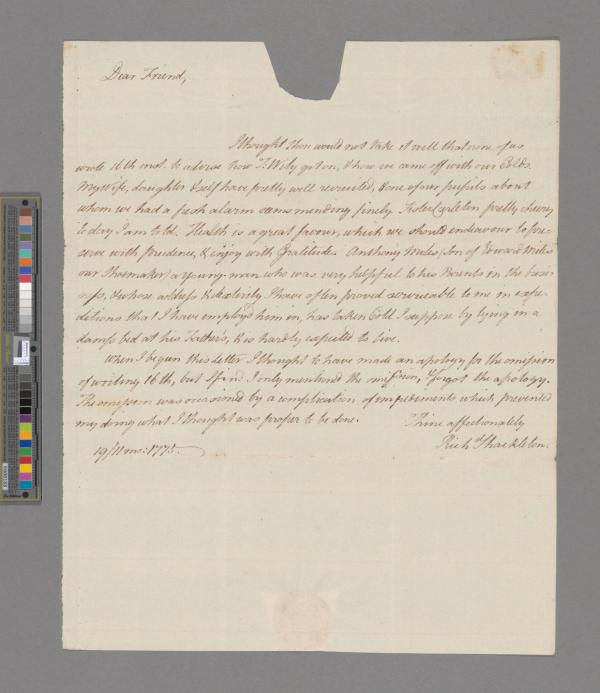 Dear Friend,
I thought thou would not take it well that none of us
wrote 16th inst. to advise how T: Wily got on, & how we came off with our Colds.
My wife, daughter & self have pretty well recruited, & one of our pupils about
whom we had a fresh alarm seems mending finely. Sister Carleton pretty cheery
to day I am told. Health is a great favour, which we should endeavour to pre-
serve with Prudence, & enjoy with Gratitude. Anthony Miles (Son of Edward Miles
our Shoemaker) a young man who was very helpful to his Parents in the busi-
ness, & whose address & dexterity I have often proved serviceable to me in expe-
ditions that I have employ'd him on, has taken Cold I suppose by lying in a
damp bed at his Father's, & is hardly expected to live.
When I begun this letter I thought to have made an apology for the omission
of writing 16th, but I find I only mention'd the omission, & forgot the apology.
The omission was occasioned by a complication of impediments which prevented
my doing what I thought was proper to be done. Thine affectionately
19/11 mo: 1775. Rich: Shackleton.